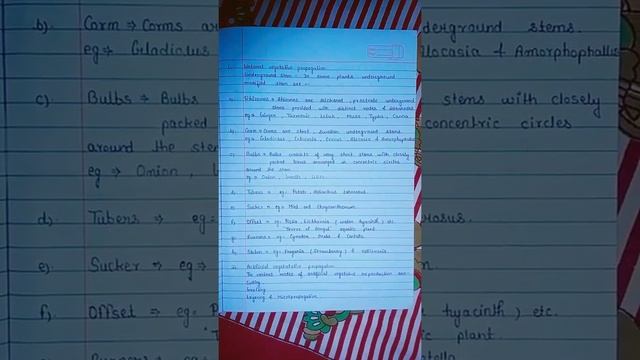 Natural vegetative propagation
Underground Stem :- In some plants underground
modified stem are :-
a) Rhizomes → Rhizomes are thickened, underground
stems provided with distinct nodes & internodes
eg → Ginger, Turmeric, Musa, Typha, Canna
b) Corm → Corms are short, swollen underground stems
eg → Gladiolus, Colocasia, Crocus, Alocasia & Amorphophallus
c) Bulbs → Bulbs consists of very short stems with closely
packed leaves arranged in concentric circles
around the stem
eg → Onion,
d) Tubers → eg: Potato, Helianthus tuberosus.
e) Sucker → eg → Mint and Chrysanthemum
f) Offset → eg. Pistia, Eichhornia (water hyacinth) etc.
'Terror of Bengal' aquatic plant
g) Runners → eg:
h) Stolon → eg. Fragaria (Strawberry) &
Artificial vegetative propagation
The various modes of artificial vegetative reproduction are:-
Cutting
Grafting
Layering & Micropropagation
b) Corm → Corms are
eg → Gladiolus
c) Bulbs → Bulbs
packed
around the stem
eg → Onion,
d) Tubers → eg:
e) Sucker → eg →
f) Offset → eg.
underground stems.
Alocasia & Amorphophallus
stems with closely
concentric circles
hyacinth) etc.
plant.